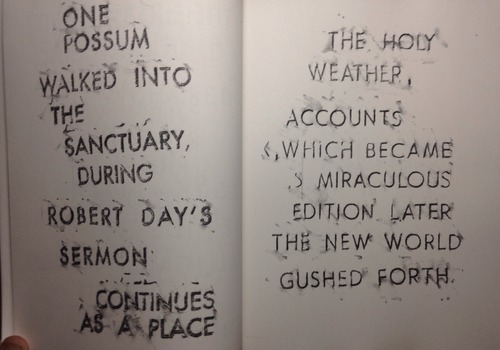 ONE
POSSUM
WALKED INTO
THE
SANCTUARY,
DURING
ROBERT DAY'S
SERMON
CONTINUES
AS A PLACE
THE HOLY
WEATHER,
ACCOUNTS
,WHICH BECAME
MIRACULOUS
EDITION LATER
THE NEW WORLD
GUSHED FORTH.